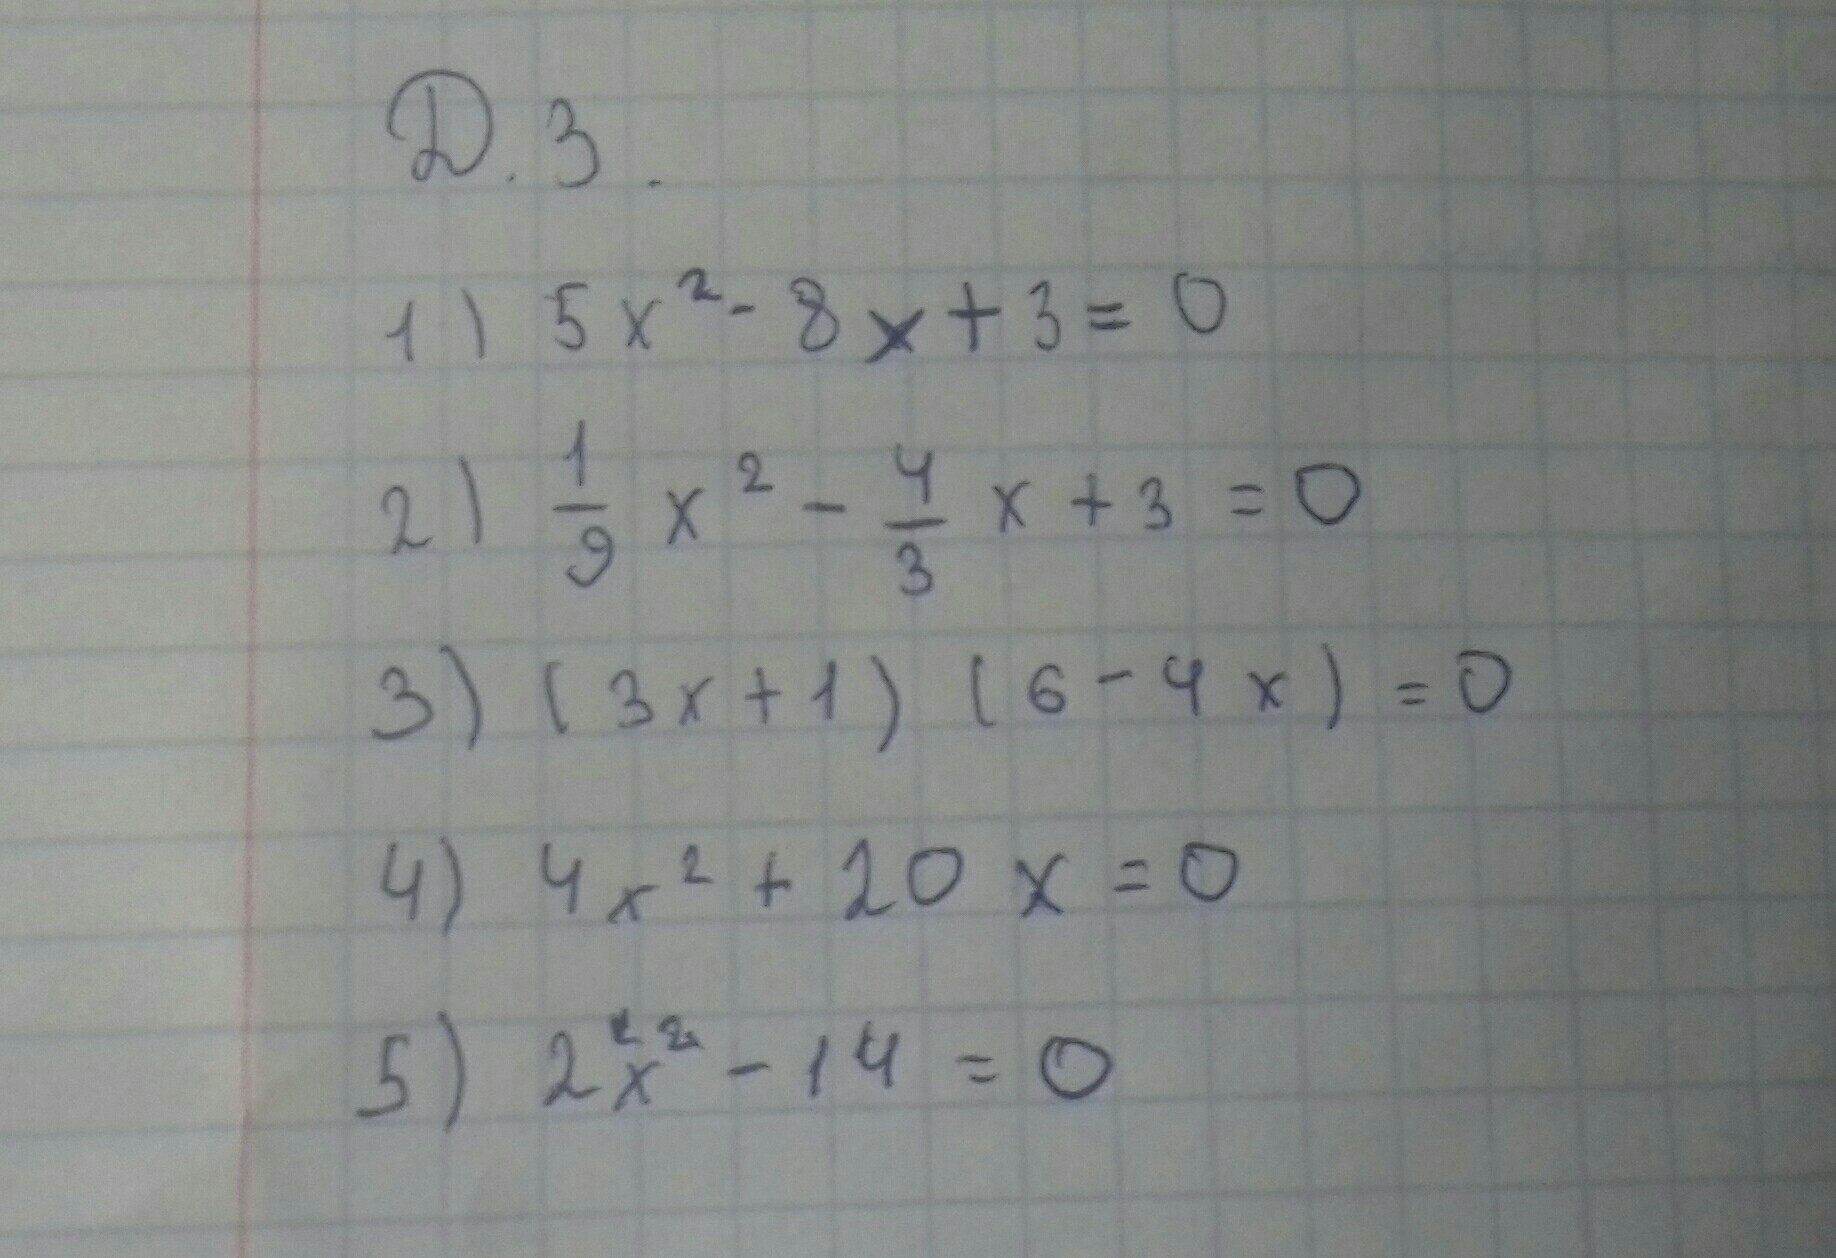 Д.З.
1) 5x² - 8x + 3 = 0
2) 1/9 x² - 4/3 x + 3 = 0
3) (3x + 1) (6 - 4x) = 0
4) 4x² + 20x = 0
5) 2x² - 14 = 0